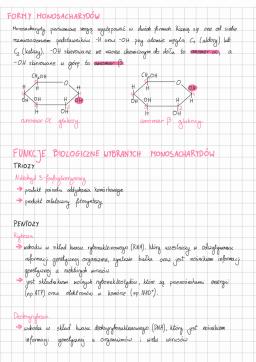 FORMY MONOSACHARYDÓW
Monosacharydy pierścieniowe mogą występować w dwóch formach różniących się one od siebie
rozmieszczeniem podstawników -H oraz -OH przy atomie węgla C₁ (aldozy) lub
C₂ (ketozy). -OH skierowane we wzorze chemicznym do dołu to anomer α, a
-OH skierowane w górę to anomer β.
CH₂OH CH₂OH
O O OH
H H H H
OH H OH H
OH OH OH H
H OH H OH
anomer α glukozy anomer β glukozy
FUNKCJE BIOLOGICZNE WYBRANYCH MONOSACHARYDÓW
TRIOZY
Aldehyd 3-fosfoglicerynowy
→ produkt pośredni oddychania komórkowego
→ produkt fotosyntezy
PENTOZY
Ryboza
→ wchodzi w skład kwasu rybonukleinowego (RNA), który uczestniczy w odczytywaniu
informacji genetycznej organizmu, syntezie białka oraz jest nośnikiem informacji
genetycznej u niektórych wirusów
→ jest składnikiem wolnych rybonukleotydów, które są przenośnikami energii
(np. ATP) oraz elektronów w komórce (np. NAD⁺).
Deoksyryboza
→ wchodzi w skład kwasu deoksyrybonukleinowego (DNA), który jest nośnikiem
informacji genetycznej u organizmów i wielu wirusów